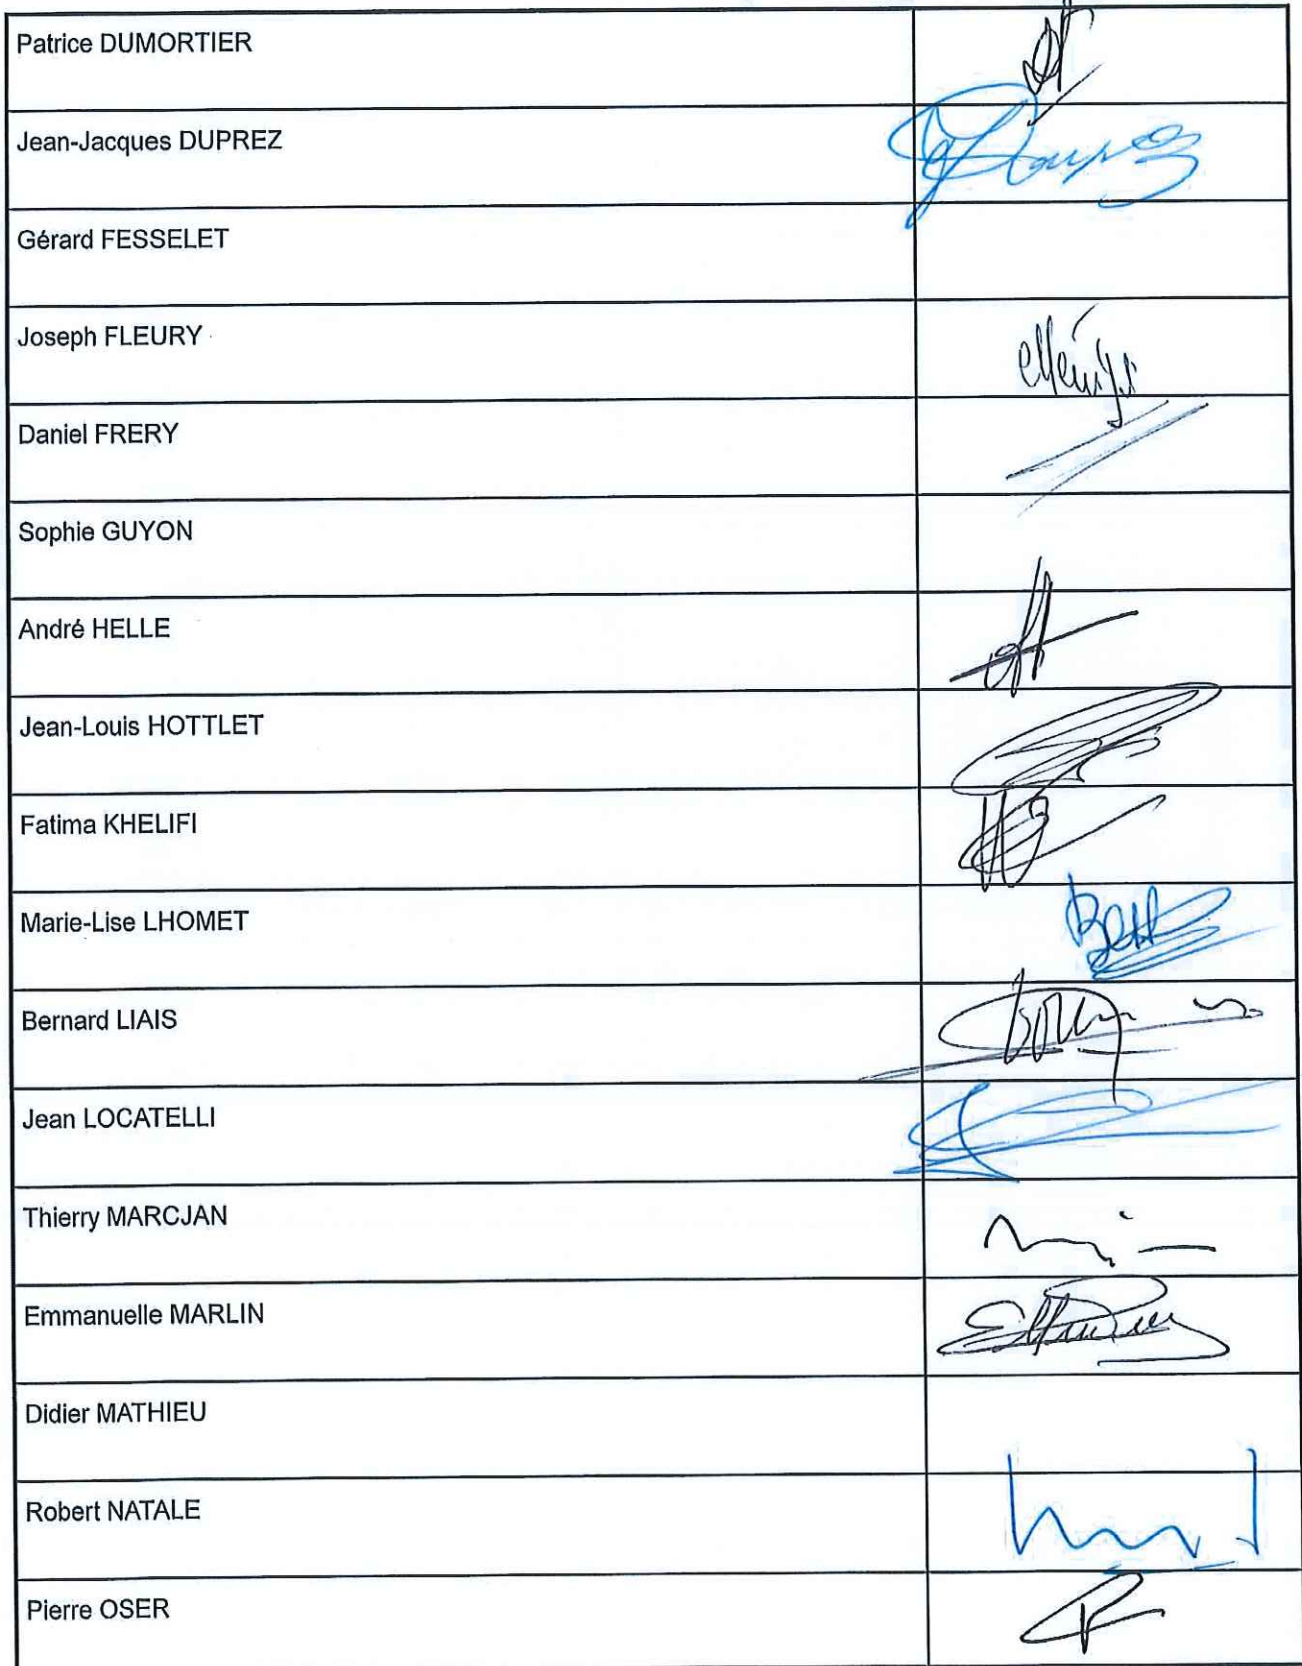 Patrice DUMORTIER
Jean-Jacques DUPREZ
Gérard FESSELET
Joseph FLEURY
Daniel FRERY
Sophie GUYON
André HELLE
Jean-Louis HOTTLET
Fatima KHELIFI
Marie-Lise LHOMET
Bernard LIAIS
Jean LOCATELLI
Thierry MARCJAN
Emmanuelle MARLIN
Didier MATHIEU
Robert NATALE
Pierre OSER